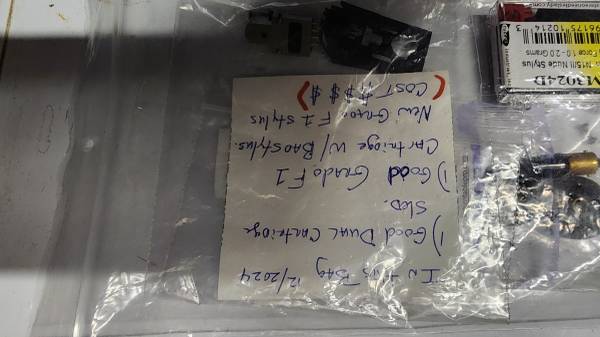 12/2024
In this Bag
1) Good Dual Cartridge
Sled.
1) Good Grado F1
Cartridge w/ Bad Stylus.
New Grado F1 stylus
(COST $$$$)
M3024D
N15III Nude Stylus
Force 1.0 - 2.0 Grams
96175 10214 3